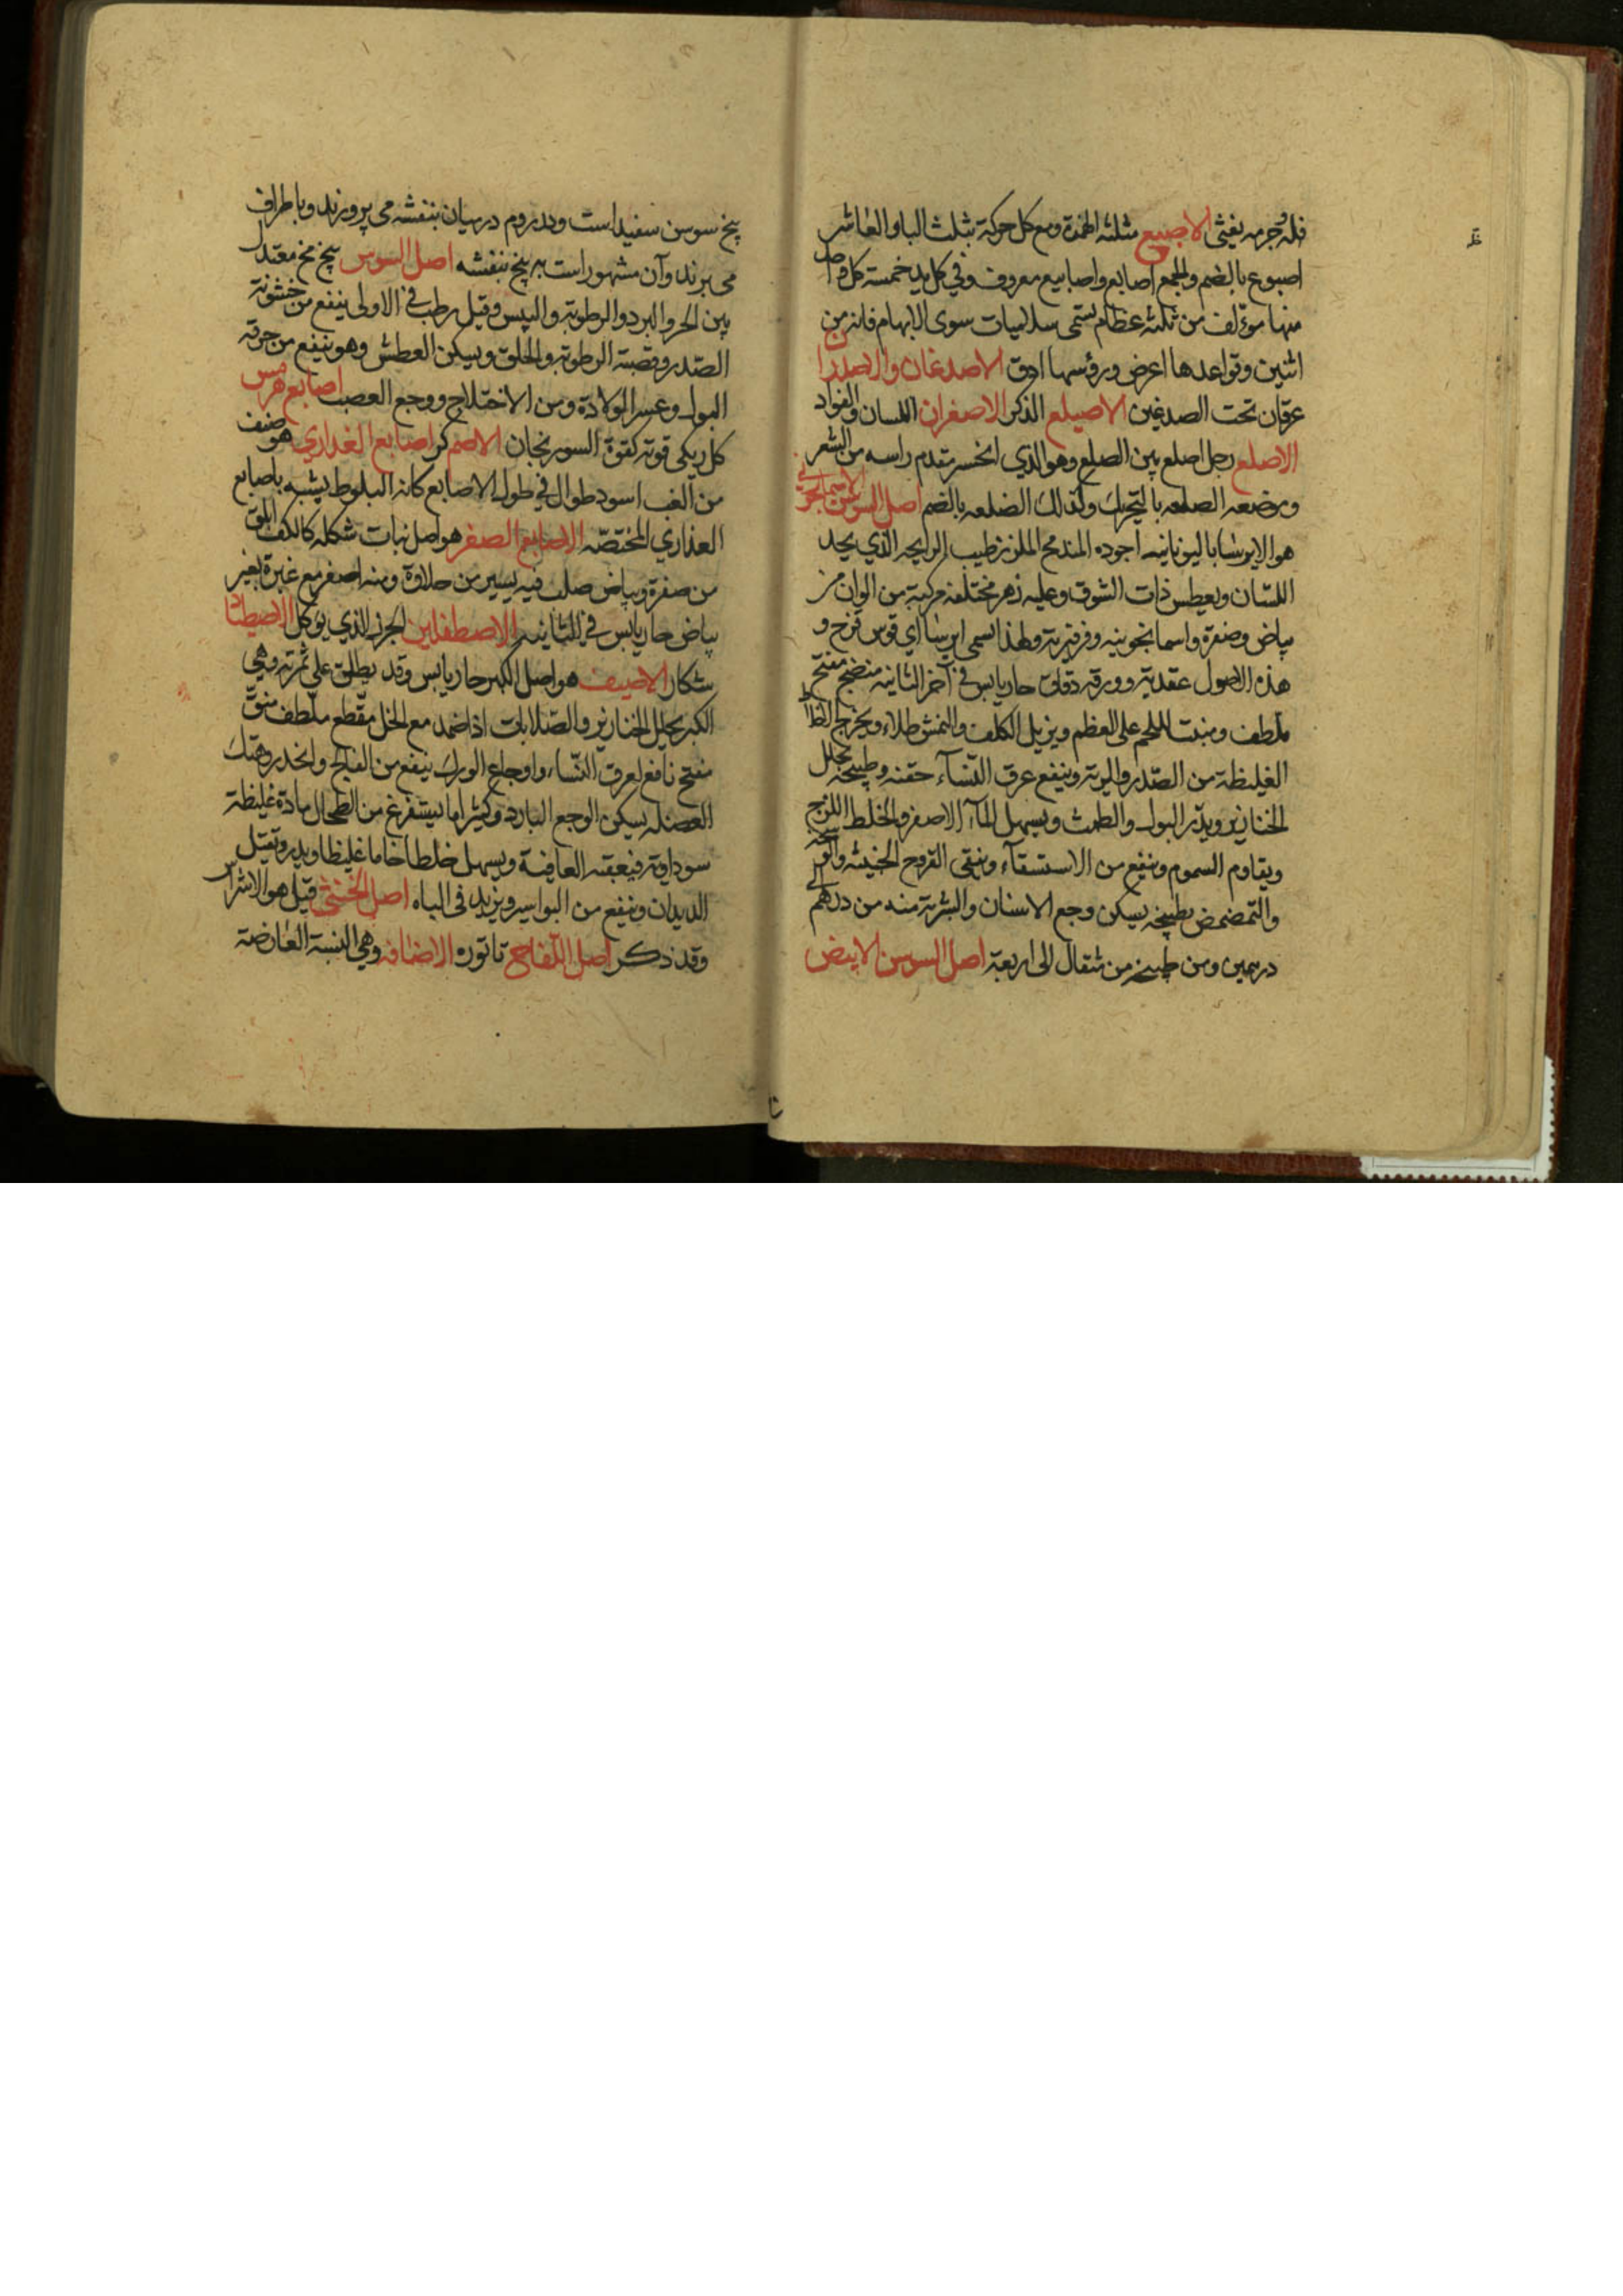 فله جرمه يغثى الاصبع مثلثه الهمزة ومع كل حركة بثلث الباء والعاشر
اصبوع بالضم والجمع اصابع واصابيع معروف وفي كل يد خمسة كل واحد
منها مؤلف من ثلثه عظام يسمى سلاميات سوى الابهام فانه من
اثنين وقواعدها اعرض ورؤسها ادق الاصدغان والاصدران
عرقان تحت الصدغين الاصيلع الذكر الاصغران اللسان والفواد
الاصلع رجل اصلع بين الصلع وهو الذي انحسر مقدم راسه من الشعر
وموضعه الصلعه بالتحريك وكذلك الصلعه بالضم اصل السوسن الاسمانجوني
هو الايرسا باليونانيه اجوده المندمج الملزز طيب الرايحه الذي يحد
اللسان ويعطس ذات الشوق وعليه زهر مختلفه مركبة من الوان من
بياض وصفرة واسمانجونيه وفرفيريه ولهذا يسمى ايرسا اي قوس قزح و
هذه الاصول عقدية وورقه دقاق حار يابس في آخر الثانيه منضج مفتح
ملطف ومنبت للحم على العظم ويزيل الكلف والنمش طلاء ويخرج
الغليظة من الصدر والرية وينفع عرق النساء حقنه وطبيخه يحلل
الخنازير ويدر البول والطمث ويسهل الماء الاصفر والخلط اللزج
ويقاوم السموم وينفع من الاستسقاء وينقى القروح الخبيثه والوسخة
والتمضمض بطبيخه يسكن وجع الاسنان والشربة منه من درهم الى
درهمين ومن طبيخه من مثقال الى اربعة اصل السوسن الابيض
بيخ سوسن سفيد است ودر روم درميان بنفشه مى پرورند وباطراف
مى برند وآن مشهور است به بيخ بنفشه اصل السوس بيخ معتدل
بين الحر والبرد والرطوبة واليبس وقيل رطب في الاولى ينفع من خشونة
الصدر وقصبة الرطوبة والحلق ويسكن العطش وهو ينفع من حرقة
البول وعسر الولادة ومن الاختلاج ووجع العصب اصابع هرمس
كل ريكى قوته كقوة السورنجان الاصم كر اصابع العذاري هو صنف
من العنب اسود طوال في طول الاصابع كانه البلوط يشبه باصابع
العذاري المختصه الاصابع الصفر هو اصل نبات شكله كالكف ابلق
من صفرة وبياض صلب فيه يسير من حلاوة ومنه اصفر مع غبرة بغير
بياض حار يابس في الثانيه الاصطفلين الجزر الذي يوكل الاصطياد
شكار الاصف هو اصل الكبر حار يابس وقد يطلق على ثمرته وهي
الكبر يحلل الخنازير والصلابات اذا ضمد مع الخل مقطع ملطف منق
مفتح نافع لعرق النساء واوجاع الورك ينفع من الفالج والخدر وهتك
العضله يسكن الوجع البارد وكثيرا ما يستفرغ من الطحال مادة غليظة
سوداوية فيعقبه العافية ويسهل خلطا خاما غليظا ويدر ويقتل
الديدان وينفع من البواسير ويزيد فى الباه اصل الخنثى قيل هو الاشراس
وقد ذكر اصل اللفاح تاتوره الاضافه وهي النسبة العارضة